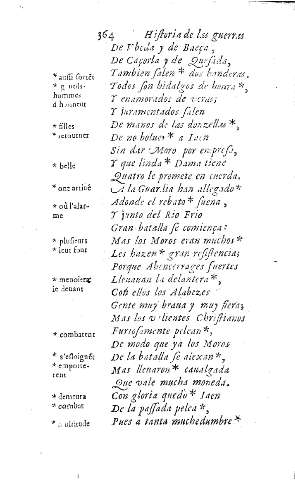 364 Historia de las guerras
De Vbeda y de Baeça,
De Caçorla y de Quesada,
* aussi sortēt Tambien salen * dos banderas.
* gentils-hommes d'honneur Todos son hidalgos de honra *,
Y enamorados de veras;
Y juramentados salen
* filles De manos de las donzellas *,
* retourner De no boluer * a Jaen
Sin dar Moro por empresa,
* belle Y que linda * Dama tiene
Quatro le promete en cuerda.
* ont arriué A la Guardia han allegado *
* où l'alarme Adonde el rebato * suena,
Y junto del Rio Frio
Gran batalla se comiença:
* plusieurs Mas los Moros eran muchos *
* leur font Les hazen * gran resistencia;
Porque Abencerrages fuertes
* menoient le deuant Lleuauan la delantera *,
Con ellos los Alabezes
Gente muy braua y muy fiera;
Mas los valientes Christianos
* combattent Furiosamente pelean *,
De modo que ya los Moros
* s'esloignēt De la batalla se alexan *,
* emporterent Mas lleuaron * caualgada
Que vale mucha moneda.
* demeura Con gloria quedo * Jaen
* combat De la passada pelea *,
* multitude Pues a tanta muchedumbre *